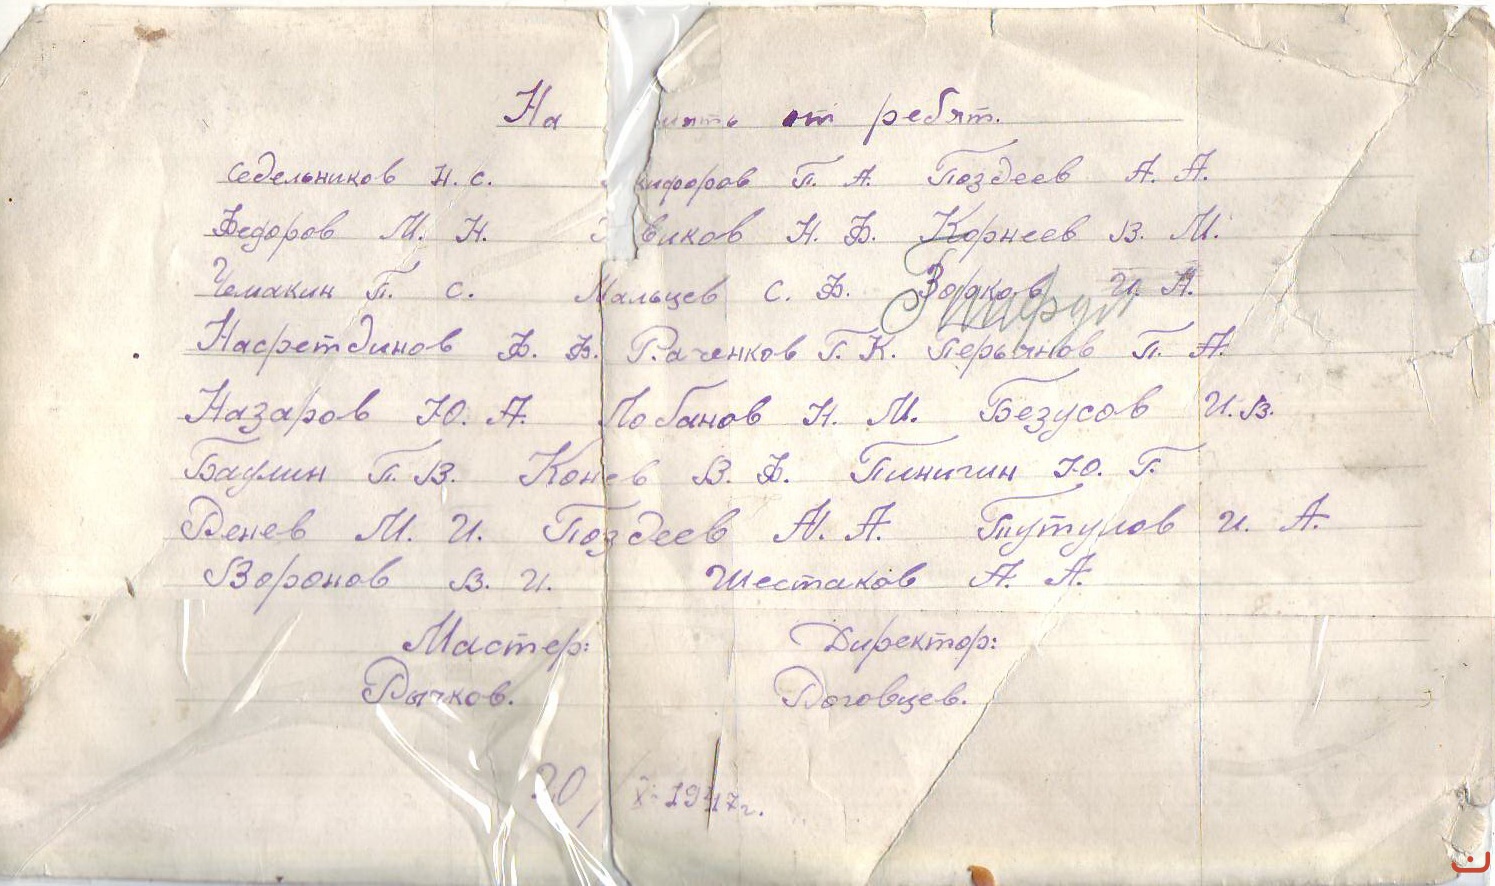 На мять от ребят.
Седельников Н. С. кифоров П. А. Поздеев А. А.
Федоров М. Н. виков Н. Ф. Корнеев В. М.
Чемакин П. С. Мальцев С. Ф. Зорков И. А.
Насретдинов Ф. Ф. Раченков Г. К. П. А.
Назаров Ю. А. Лобанов Н. М. Безусов И. В.
Баулин П. В. Конев В. Ф. Пиничин Ю. Г.
Ренев М. И. Поздеев А. А. Тутулов И. А.
Воронов В. И. Шестаков А. А.
Мастер: Директор:
Рычков. Роговцев.
20/X-1947г.